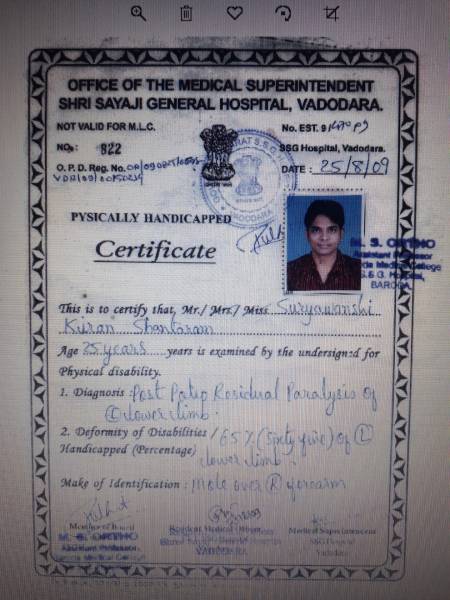 OFFICE OF THE MEDICAL SUPERINTENDENT
SHRI SAYAJI GENERAL HOSPITAL, VADODARA.
NOT VALID FOR M.L.C.
No. EST. 9
No.: 922
SSG Hospital, Vadodara.
O. P. D. Reg. No.
DATE : 25/8/09
PYSICALLY HANDICAPPED
Certificate
M. S. ORTHO
Assistant Professor
Medical College
S.S.G. Hospital,
BARODA.
This is to certify that, Mr./ Mrs./ Miss Suryawanshi
Kiran Shantaram
Age 25 years years is examined by the undersigned for
Physical disability.
1. Diagnosis : Post Polio Residual Paralysis of
(L) lower limb.
2. Deformity of Disabilities / 65% (sixty five) of (L)
Handicapped (Percentage) lower limb.
Make of Identification : Mole over (R) forearm
Member of Board
Resident Medical Officer
Medical Superintendent
M. S. ORTHO
SSG Hospital
Assistant Professor
Medical College
VADODARA
Vadodara